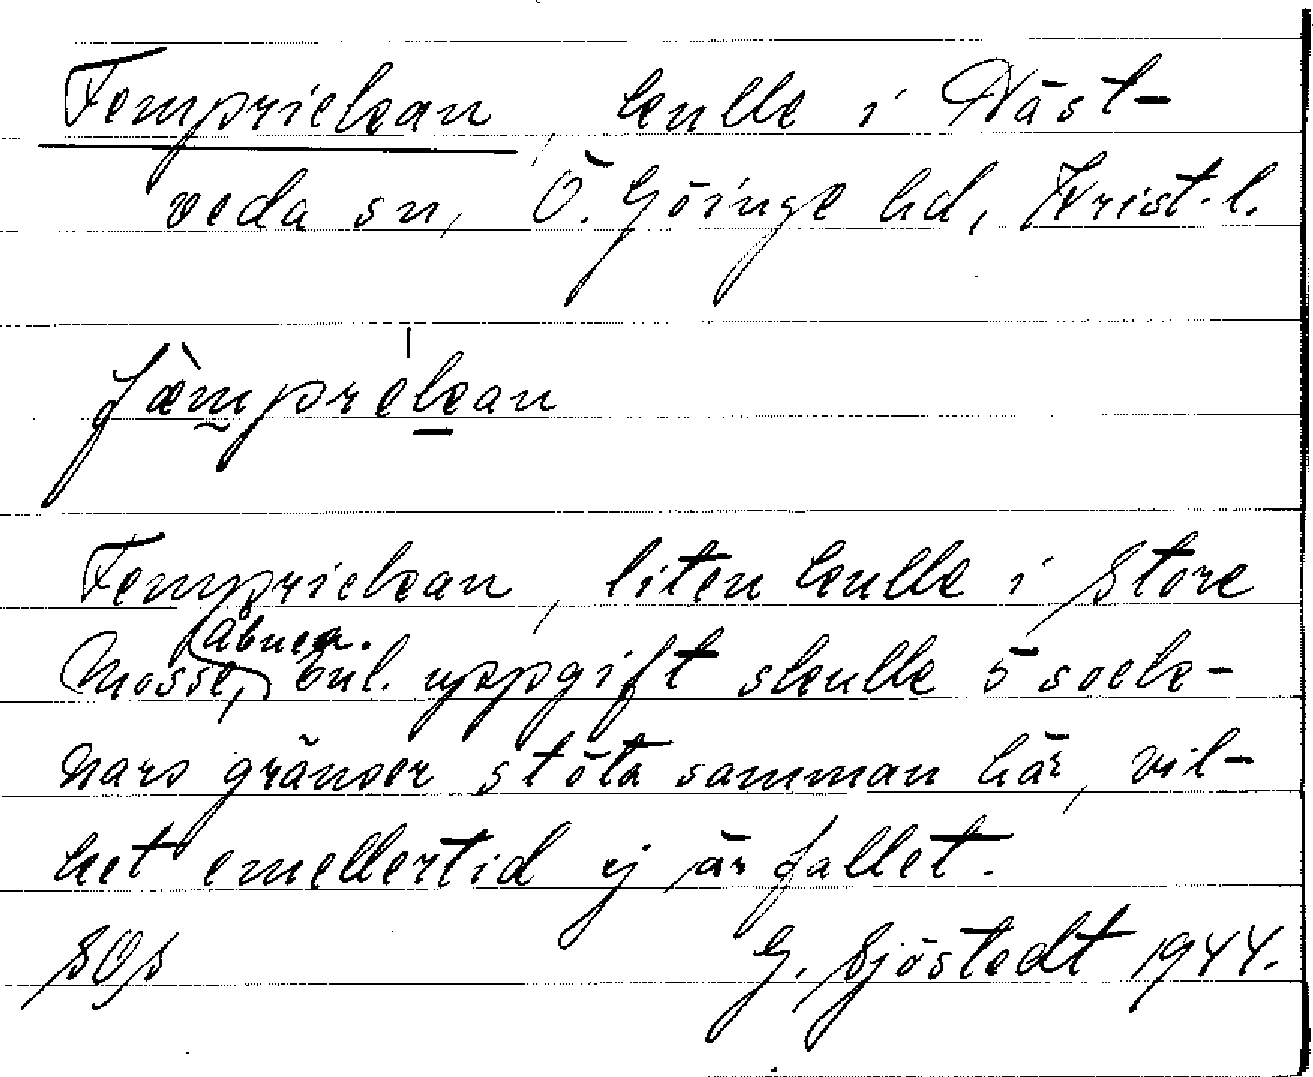 Femprickan, kulle i Häst-
veda sn, Ö. Göinge hd, Krist.l.
fæ̀mprekan
Femprickan, liten kulle i Store
Mosse, enl. uppgift skulle 5 sock-
nars gränser stöta samman här, vil-
ket emellertid ej är fallet.
SOS G. Sjöstedt 1944.